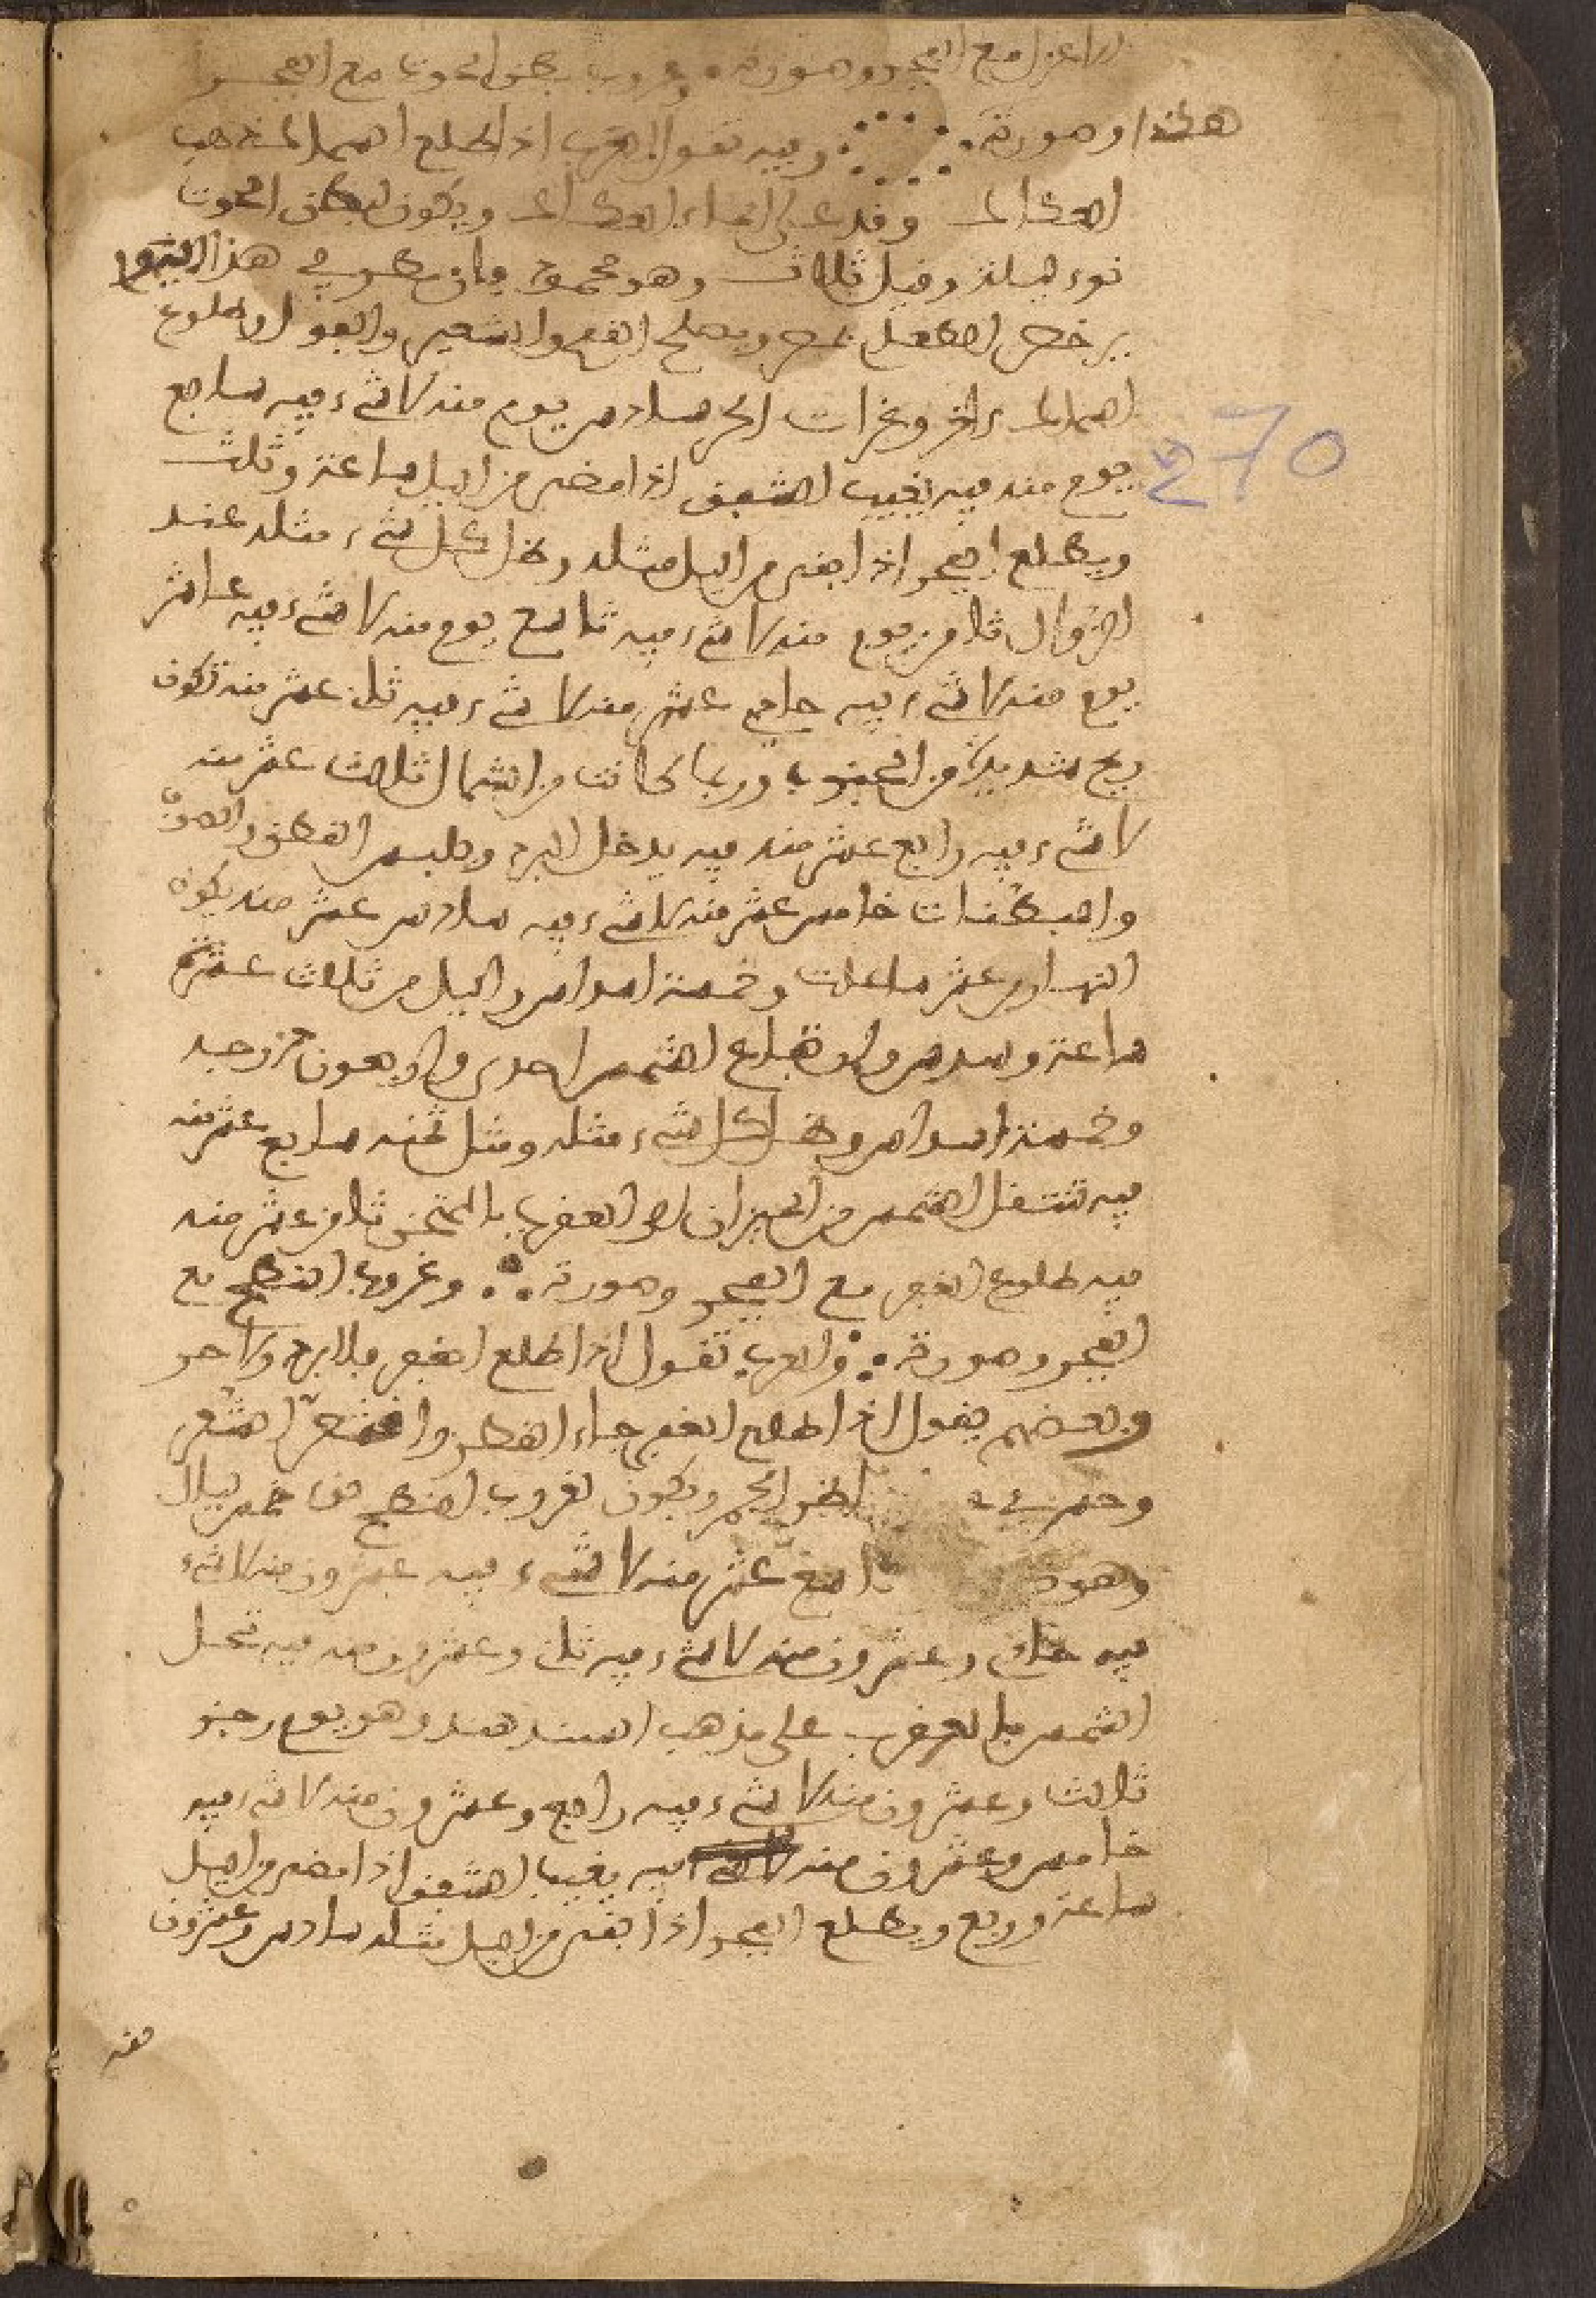 الاعزل مع الفجر وصورته وغروب بطن الحوت مع الفجر
هكذا وصورته وفيه تقول العرب اذا طلع السماك ذهب
العكاك وقد على الماء العكاك ويكون لبطن الحوت
نوء ليلة وقيل ثلاث وهو محمود فان مطر في هذا النوء
يرخص الطعام بمصر ويصلح القمح والشعير والفول ولطلوع
السماك ءاخر وغرات الحر سادس يوم منه لا شيء فيه سابع
يوم منه فيه يغيب الشفق اذا مضى من اليل ساعة وثلث
ويطلع الفجر اذا بقي من اليل مثله وظل كل شيء مثله عند
الزوال ثامن يوم منه لا شيء فيه تاسع يوم منه لا شيء فيه عاشر
يوم منه لا شيء فيه حادي عشر منه لا شيء فيه ثان عشر منه تكون
ريح شديدة من الجنوب وربما كانت من الشمال ثالث عشر منه
لا شيء فيه رابع عشر منه فيه يدخل البرد ويلبس القطن والصوف
والمبطنات خامس عشر منه لا شيء فيه سادس عشر منه يكون
النهار من عشر ساعات وخمسة اسداس واليل من ثلاث عشرة
ساعة وسدس وارتفاع الشمس احدى واربعون درجة
وخمسة اسداس وظل كل شيء مثله ومثل ثمنه سابع عشر منه
فيه تنتقل الشمس من الميزان الى العقرب بالممتحن ثامن عشر منه
فيه طلوع الغفر مع الفجر وصورته وغروب النطح مع
الفجر وصورته والعرب تقول اذا طلع الغفر فلا برد ولا حر
وبعضهم يقول اذا طلع الغفر جاء القطر واقشعر الشعر
وحمر ويكون لغروب النطح من خمس ليال
وهو تاسع عشر منه لا شيء فيه عشرون منه لا شيء
فيه حادي وعشرون منه لا شيء فيه ثان وعشرون منه فيه تحل
الشمس بالعقرب على مذهب السند هند وهو يوم رجز
ثالث وعشرون منه لا شيء فيه رابع وعشرون منه لا شيء فيه
خامس وعشرون منه فيه يغيب الشفق اذا مضى من اليل
ساعة وربع ويطلع الفجر اذا بقي من اليل مثله سادس وعشرون
منه
270